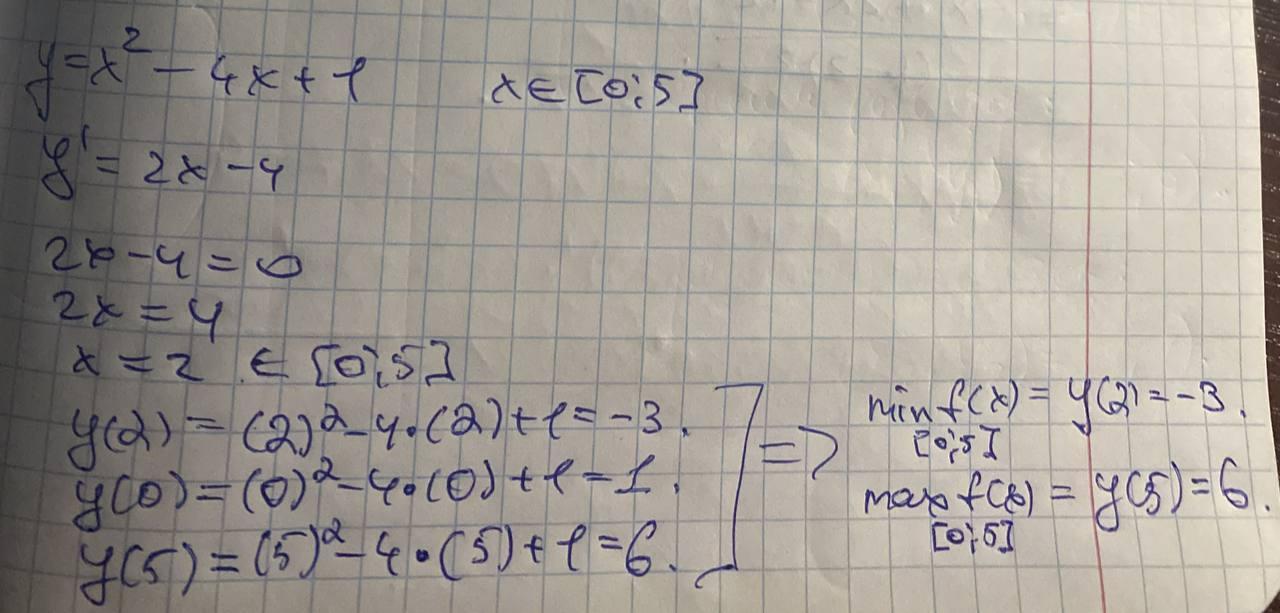 y=x² - 4x + 1 x ∈ [0; 5]
y' = 2x - 4
2x - 4 = 0
2x = 4
x = 2 ∈ [0; 5]
y(2) = (2)² - 4·(2) + 1 = -3.
y(0) = (0)² - 4·(0) + 1 = 1.
y(5) = (5)² - 4·(5) + 1 = 6.
=>
min f(x) = y(2) = -3.
[0; 5]
max f(x) = y(5) = 6.
[0; 5]